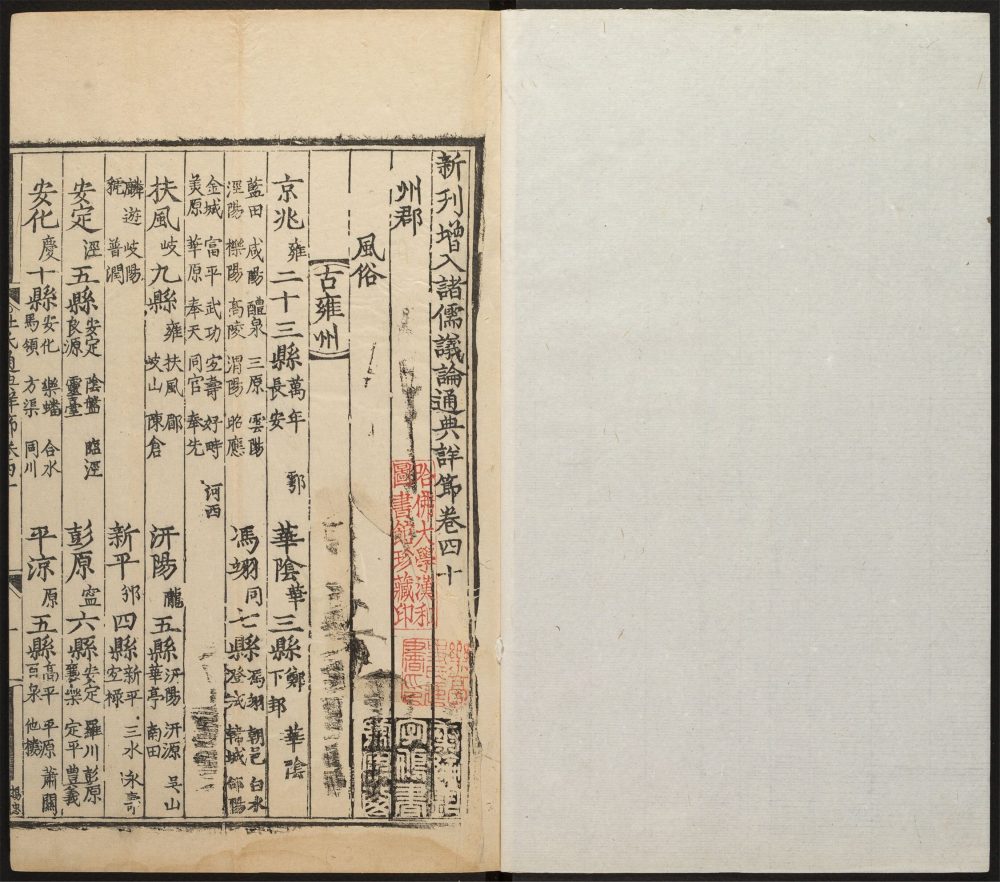 新刊增入諸儒議論通典詳節卷四十
州郡
風俗
古雍州
京兆雍二十三縣萬年 鄠
長安
華陰華三縣鄭 華陰
下邽
藍田 咸陽 醴泉 三原 雲陽
涇陽 櫟陽 高陵 渭陽 昭應
馮翊同七縣馮翊 朝邑 白水
澄城 韓城 郃陽
金城 富平 武功 安壽 好畤
河西
美原 華原 奉天 同官 奉先
扶風岐九縣雍 扶風 郿
岐山 陳倉
汧陽隴五縣汧陽 汧源 吳山
華亭 南田
麟遊 岐陽
虢 普潤
新平邠四縣新平 三水 永壽
宜祿
安定涇五縣安定 陰盤 臨涇
良源 靈臺
彭原寧六縣安定 羅川 彭原
襄樂 定平 豊義
安化慶十縣安化 樂蟠 合水
馬領 方渠 同川
平涼原五縣高平 平原 蕭關
百泉 他樓
哈佛大學漢和
圖書館珍藏印